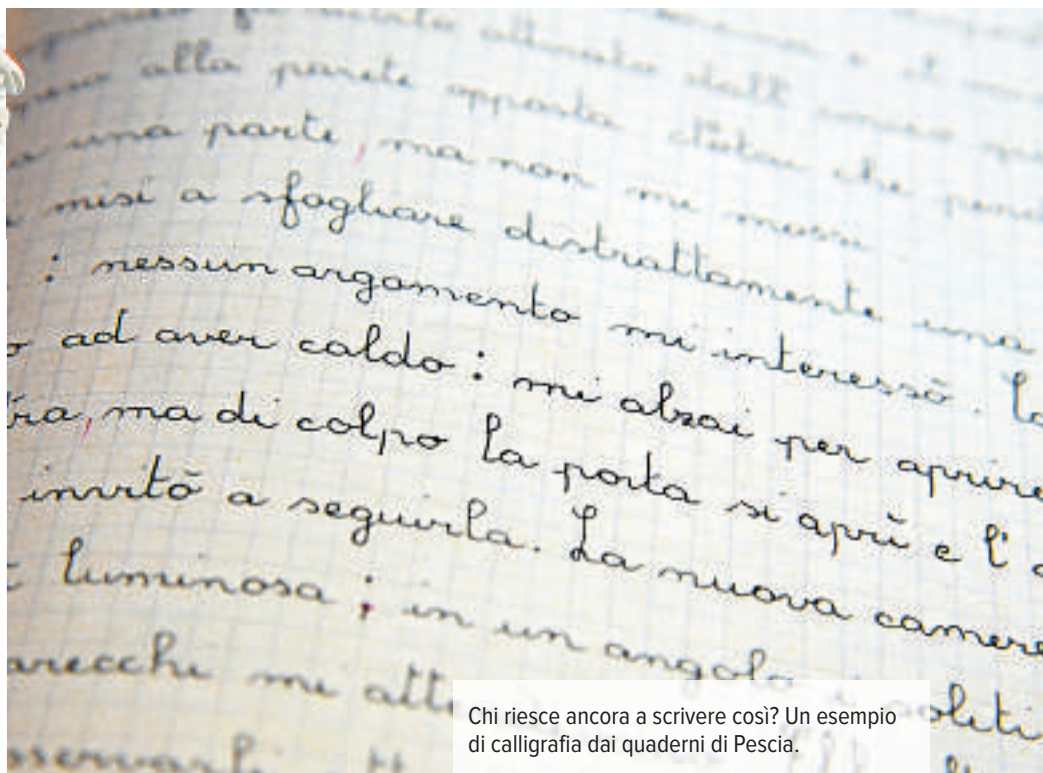 attratto dall'
alla parete opposta che
una parte, ma non mi mossi
misi a sfogliare distrattamente una
: nessun argomento mi interessò. La
o ad aver caldo: mi alzai per aprire
tra, ma di colpo la porta si aprì e l'
invitò a seguirla. La nuova camera
luminosa; in un angolo i soliti
arecchi mi att
Chi riesce ancora a scrivere così? Un esempio
di calligrafia dai quaderni di Pescia.